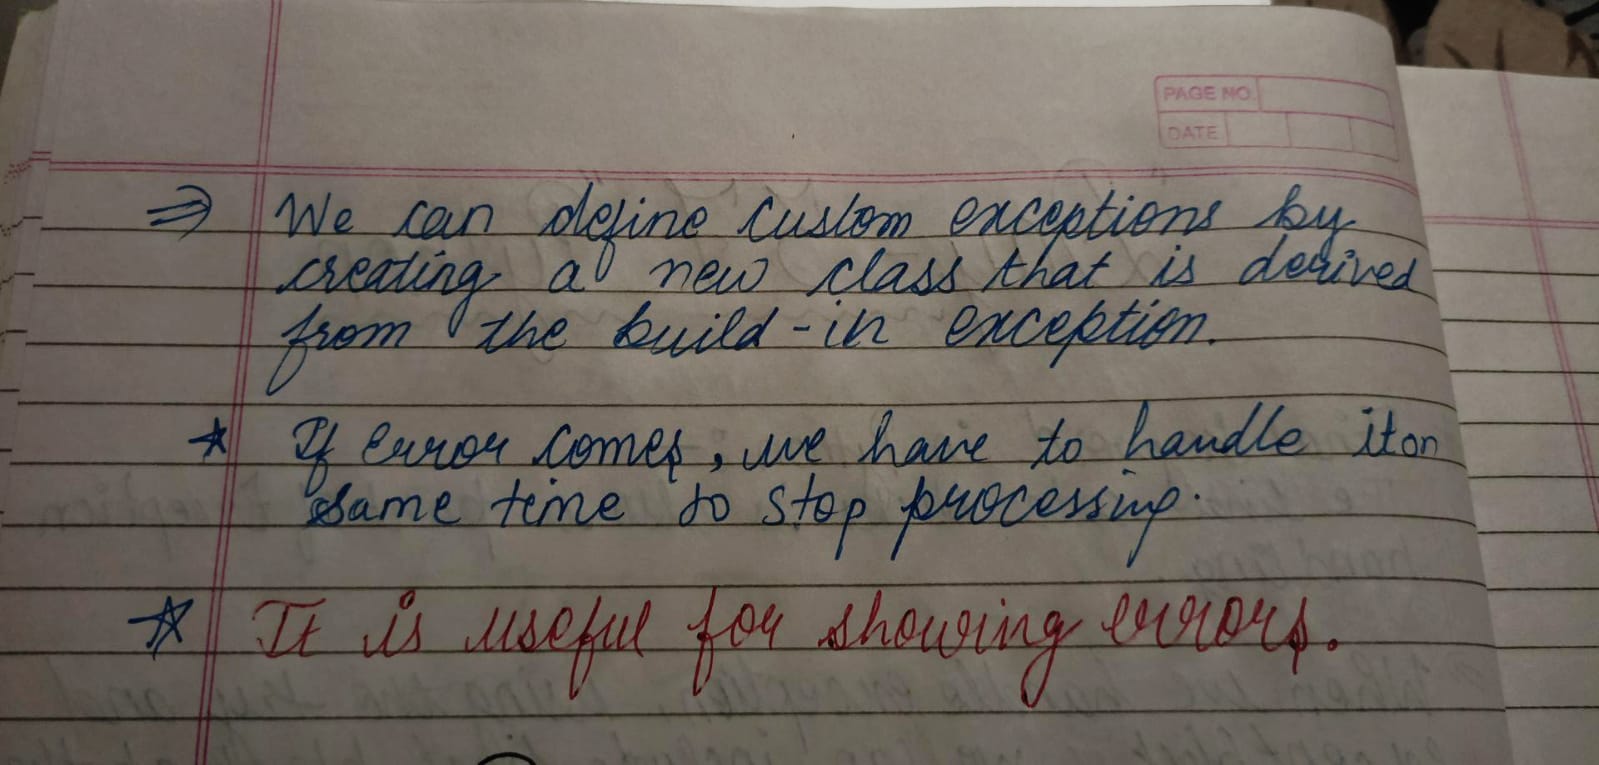 PAGE NO.
DATE
⇒ We can define custom exceptions by
creating a new class that is derived
from the build-in exception.
★ If error comes, we have to handle it on
same time to stop processing.
★ It is useful for showing errors.